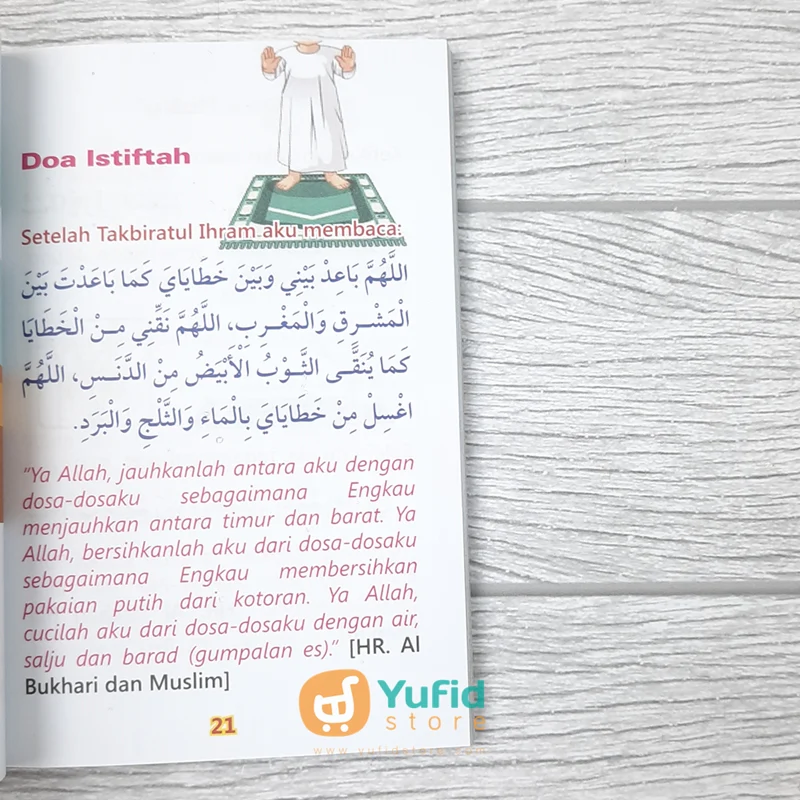 Doa Istiftah
Setelah Takbiratul Ihram aku membaca:
اللَّهُمَّ بَاعِدْ بَيْنِي وَبَيْنَ خَطَايَايَ كَمَا بَاعَدْتَ بَيْنَ
الْمَشْرِقِ وَالْمَغْرِبِ، اللَّهُمَّ نَقِّنِي مِنْ الْخَطَايَا
كَمَا يُنَقَّى الثَّوْبُ الْأَبْيَضُ مِنْ الدَّنَسِ، اللَّهُمَّ
اغْسِلْ مِنْ خَطَايَايَ بِالْمَاءِ وَالثَّلْجِ وَالْبَرَدِ.
"Ya Allah, jauhkanlah antara aku dengan
dosa-dosaku sebagaimana Engkau
menjauhkan antara timur dan barat. Ya
Allah, bersihkanlah aku dari dosa-dosaku
sebagaimana Engkau membersihkan
pakaian putih dari kotoran. Ya Allah,
cucilah aku dari dosa-dosaku dengan air,
salju dan barad (gumpalan es)." [HR. Al
Bukhari dan Muslim]
21
Yufid
store
www.yufidstore.com